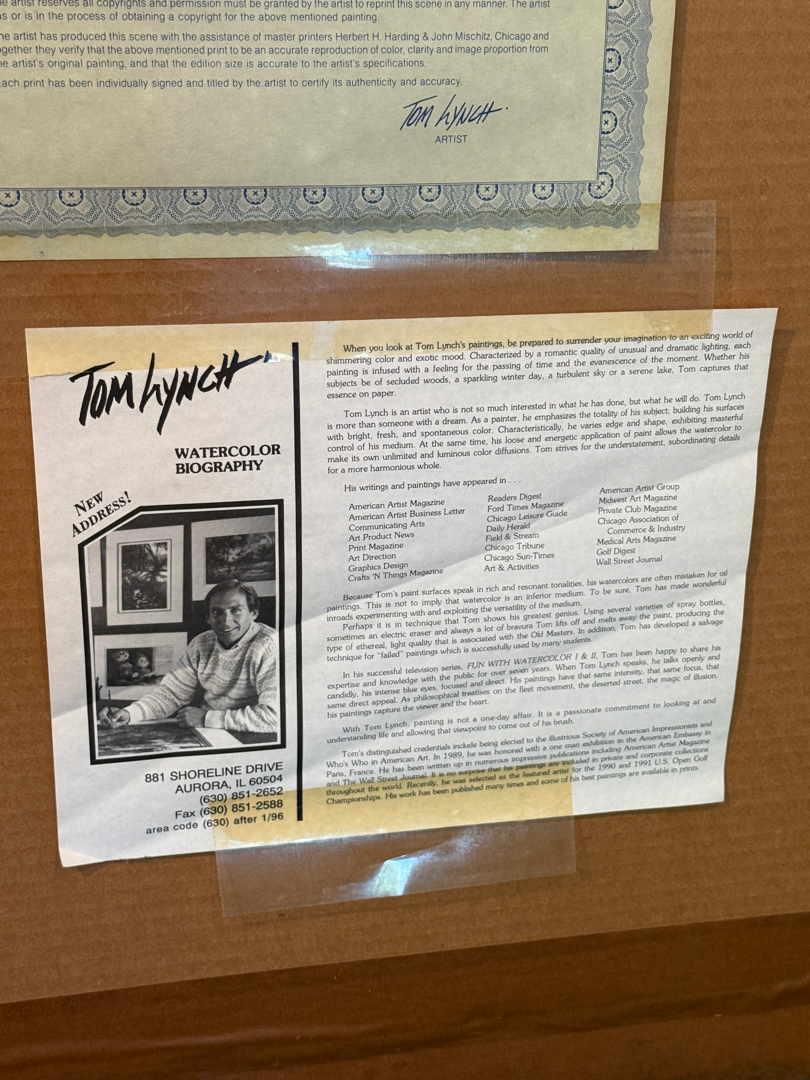 e artist reserves all copyrights and permission must be granted by the artist to reprint this scene in any manner. The artist
s or is in the process of obtaining a copyright for the above mentioned painting.
he artist has produced this scene with the assistance of master printers Herbert H. Harding & John Mischitz, Chicago and
ogether they verify that the above mentioned print to be an accurate reproduction of color, clarity and image proportion from
e artist's original painting, and that the edition size is accurate to the artist's specifications.
Each print has been individually signed and titled by the artist to certify its authenticity and accuracy.
TOM LYNCH
ARTIST
TOM LYNCH
WATERCOLOR
BIOGRAPHY
NEW
ADDRESS!
881 SHORELINE DRIVE
AURORA, IL 60504
(630) 851-2652
Fax (630) 851-2588
area code (630) after 1/96
When you look at Tom Lynch's paintings, be prepared to surrender your imagination to an exciting world of
shimmering color and exotic mood. Characterized by a romantic quality of unusual and dramatic lighting, each
painting is infused with a feeling for the passing of time and the evanescence of the moment. Whether his
subjects be of secluded woods, a sparkling winter day, a turbulent sky or a serene lake, Tom captures that
essence on paper.
Tom Lynch is an artist who is not so much interested in what he has done, but what he will do. Tom Lynch
is more than someone with a dream. As a painter, he emphasizes the totality of his subject; building his surfaces
with bright, fresh, and spontaneous color. Characteristically, he varies edge and shape, exhibiting masterful
control of his medium. At the same time, his loose and energetic application of paint allows the watercolor to
make its own unlimited and luminous color diffusions. Tom strives for the understatement, subordinating details
for a more harmonious whole.
His writings and paintings have appeared in . . .
American Artist Magazine
American Artist Business Letter
Communicating Arts
Art Product News
Print Magazine
Art Direction
Graphics Design
Crafts 'N Things Magazine
Readers Digest
Ford Times Magazine
Chicago Leisure Guide
Daily Herald
Field & Stream
Chicago Tribune
Chicago Sun-Times
Art & Activities
American Artist Group
Midwest Art Magazine
Private Club Magazine
Chicago Association of
Commerce & Industry
Medical Arts Magazine
Golf Digest
Wall Street Journal
Because Tom's paint surfaces speak in rich and resonant tonalities, his watercolors are often mistaken for oil
paintings. This is not to imply that watercolor is an inferior medium. To be sure, Tom has made wonderful
inroads experimenting with and exploiting the versatility of the medium.
Perhaps it is in technique that Tom shows his greatest genius. Using several varieties of spray bottles,
sometimes an electric eraser and always a lot of bravura Tom lifts off and melts away the paint, producing the
type of ethereal, light quality that is associated with the Old Masters. In addition, Tom has developed a salvage
technique for "failed" paintings which is successfully used by many students.
In his successful television series, FUN WITH WATERCOLOR I & II, Tom has been happy to share his
expertise and knowledge with the public for over seven years. When Tom Lynch speaks, he talks openly and
candidly, his intense blue eyes, focused and direct. His paintings have that same intensity, that same focus, that
same direct appeal. As philosophical treatises on the fleet movement, the deserted street, the magic of illusion,
his paintings capture the viewer and the heart.
With Tom Lynch, painting is not a one-day affair. It is a passionate commitment to looking at and
understanding life and allowing that viewpoint to come out of his brush.
Tom's distinguished credentials include being elected to the illustrious Society of American Impressionists and
Who's Who in American Art. In 1989, he was honored with a one man exhibition in the American Embassy in
Paris, France. He has been written up in numerous impressive publications including American Artist Magazine
and The Wall Street Journal. It is no surprise that his paintings are included in private and corporate collections
throughout the world. Recently, he was selected as the featured artist for the 1990 and 1991 U.S. Open Golf
Championships. His work has been published many times and some of his best paintings are available in prints.